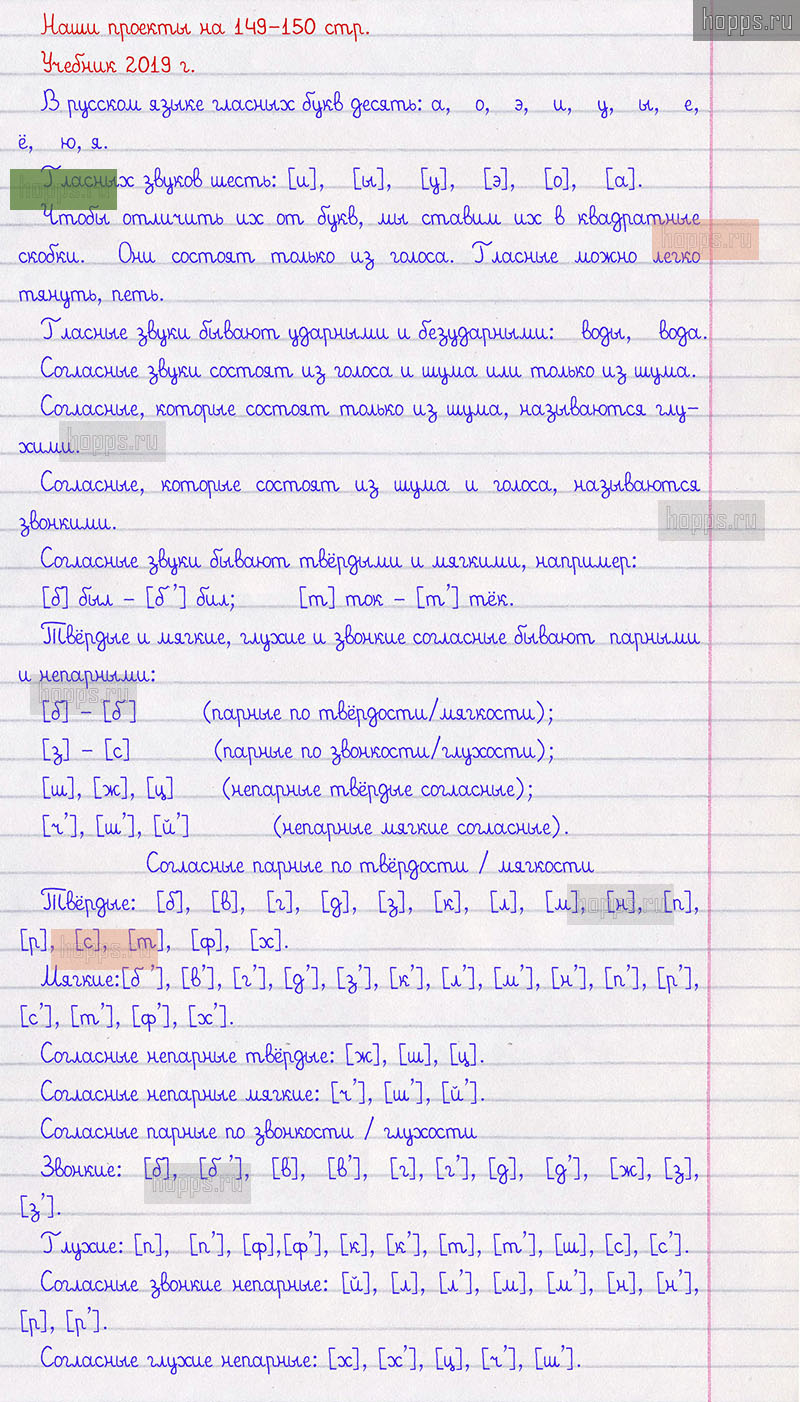 hopps.ru
Наши проекты на 149-150 стр.
Учебник 2019 г.
В русском языке гласных букв десять: а, о, э, и, у, ы, е,
ё, ю, я.
Гласных звуков шесть: [и], [ы], [у], [э], [о], [а].
hopps.ru
Чтобы отличить их от букв, мы ставим их в квадратные
hopps.ru
скобки. Они состоят только из голоса. Гласные можно легко
тянуть, петь.
Гласные звуки бывают ударными и безударными: воды, вода.
Согласные звуки состоят из голоса и шума или только из шума.
Согласные, которые состоят только из шума, называются глу-
хими.
hopps.ru
Согласные, которые состоят из шума и голоса, называются
звонкими.
hopps.ru
Согласные звуки бывают твёрдыми и мягкими, например:
[б] был - [б'] бил; [т] ток - [т'] тёк.
Твёрдые и мягкие, глухие и звонкие согласные бывают парными
и непарными:
hopps.ru
[б] - [б'] (парные по твёрдости/мягкости);
[з] - [с] (парные по звонкости/глухости);
[ш], [ж], [ц] (непарные твёрдые согласные);
[ч'], [ш'], [й'] (непарные мягкие согласные).
Согласные парные по твёрдости / мягкости
Твёрдые: [б], [в], [г], [д], [з], [к], [л], [м], [н], [п],
hopps.ru
[р], [с], [т], [ф], [х].
hopps.ru
Мягкие:[б'], [в'], [г'], [д'], [з'], [к'], [л'], [м'], [н'], [п'], [р'],
[с'], [т'], [ф'], [х'].
Согласные непарные твёрдые: [ж], [ш], [ц].
Согласные непарные мягкие: [ч'], [ш'], [й'].
Согласные парные по звонкости / глухости
Звонкие: [б], [б'], [в], [в'], [г], [г'], [д], [д'], [ж], [з],
hopps.ru
[з'].
Глухие: [п], [п'], [ф],[ф'], [к], [к'], [т], [т'], [ш], [с], [с'].
Согласные звонкие непарные: [й], [л], [л'], [м], [м'], [н], [н'],
[р], [р'].
Согласные глухие непарные: [х], [х'], [ц], [ч'], [ш'].